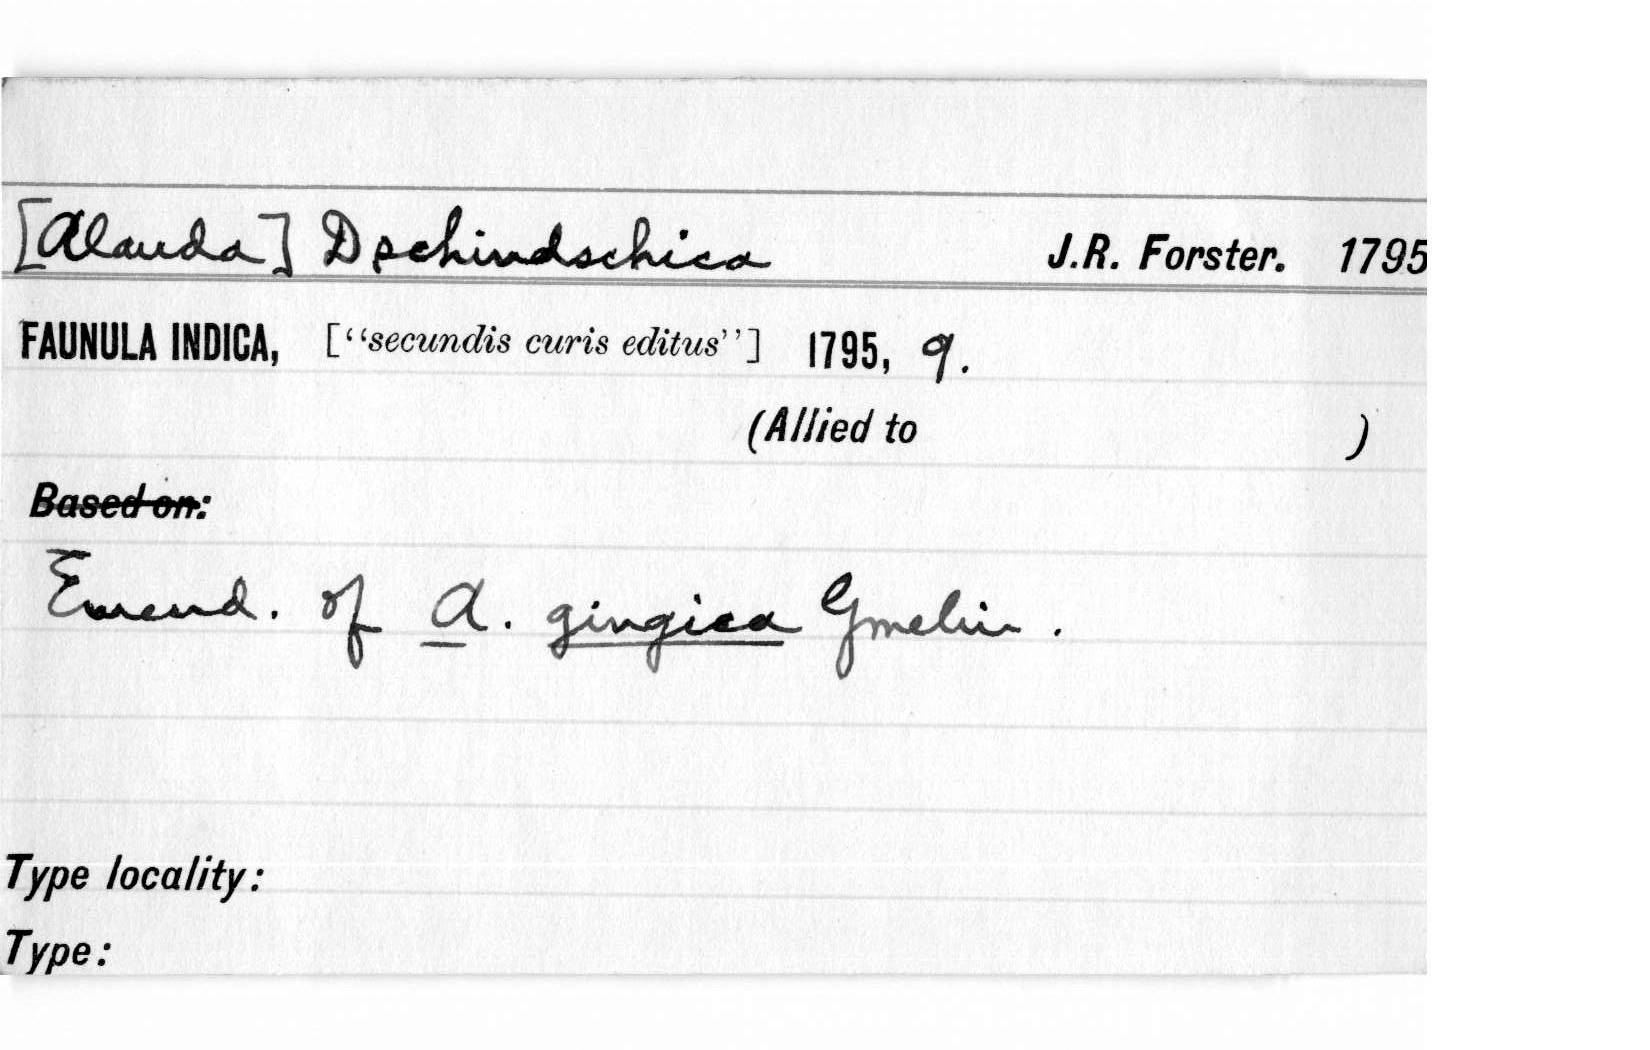 [Alauda] Dschindschica J.R. Forster. 1795
FAUNULA INDICA, ["secundis curis editus"] 1795, 9.
(Allied to )
Based on:
Emend. of A. gingica Gmelin.
Type locality:
Type: